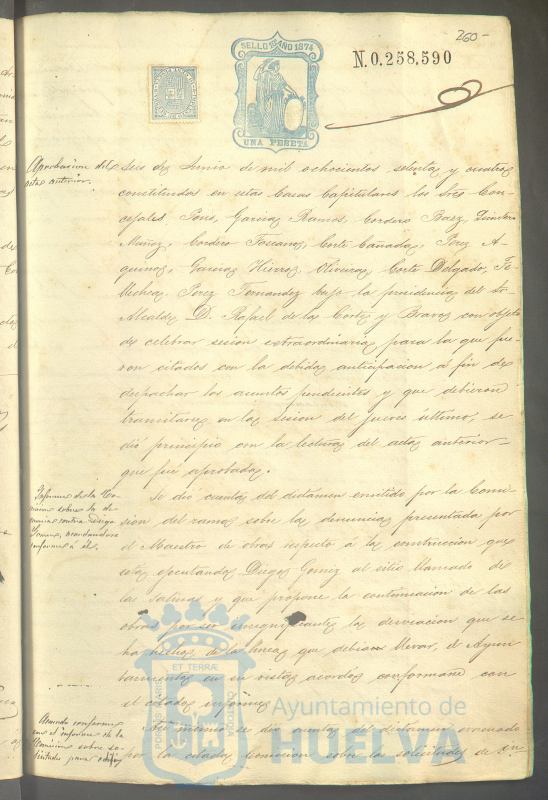 260-
SELLO 10º AÑO 1874
UNA PESETA
N. 0.258,590
Aprobacion del
acta anterior.
seis de Junio de mil ochocientos setenta y cuatro
constituidos en estas Casas Capitulares los Sres Con-
cejales Pons, Garcia Ramos, Cordero Baez, Quintero
Muñoz, Cordero Toscano, Corte Cañada, Perez A-
quino, Garcia Hierro, Oliveira, Corte Delgado,
Perez Fernandez bajo la presidencia del Sr
Alcalde D. Rafael de la Corte y Bravo con objeto
de celebrar sesion extraordinaria para la que fue-
ron citados con la debida anticipacion, a fin de
despachar los asuntos pendientes y que debieron
tramitarse en la sesion del jueves último, se
dió principio con la lectura del acta anterior
que fué aprobada.
Informe de la Co-
mision sobre la de-
nuncia contra Diego
Gomez,
informe á él.
Se dió cuenta del dictámen emitido por la Comi-
sion del ramo sobre la denuncia presentada por
el Maestro de obras respecto á la construccion que
está ejecutando Diego Gomez al sitio llamado de
las salinas y que propone la continuacion de las
obras por ser insignificante la desviacion que se
ha hecho de la línea que debiera llevar, el Ayun-
tamiento en su vista acordó conformarse con
el citado informe.
Acuerdo conforme
con el informe de la
Comision sobre so-
licitudes para
Asi mismo se dió cuenta del dictámen evacuado
por la citada Comision sobre las solicitudes de
ET TERRÆ
CUSTODIA
Ayuntamiento de
HUELVA